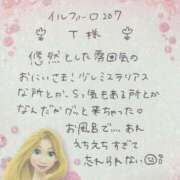 イルフィーロ207
T様
悠然とした雰囲気の
おにいさま！少しミステリアス
な所とか、Sい気もある所とか
なんだかグッと来ちゃった
お風呂で…。あん
えちえちすぎて
忘れらんない